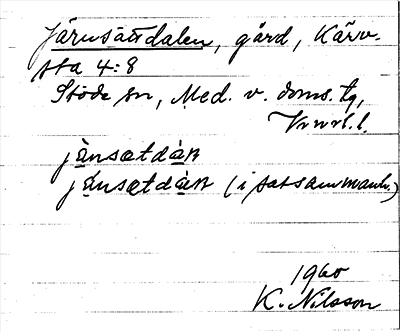 Järnsättdalen, gård, Kärv-
sta 4:8
Stöde sn, Med. v. doms. tg,
Vnrrl. l.
jànsætdàɴ
jánsætdàɴ (i satsammanh.)
1960
K. Nilsson